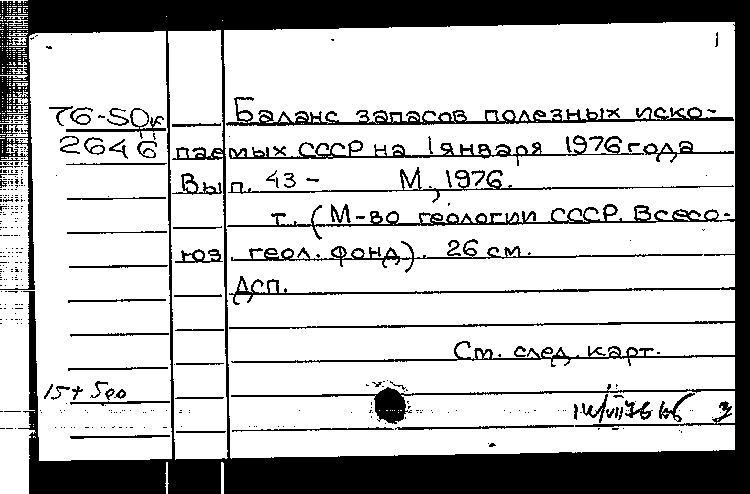 1
76-50к Баланс запасов полезных иско-
2646 паемых СССР на 1 января 1976 года
Вып. 43- М., 1976.
т. (М-во геологии СССР. Всесо-
юз. геол. фонд). 26 см.
Дсп.
См. след. карт.
15+
3